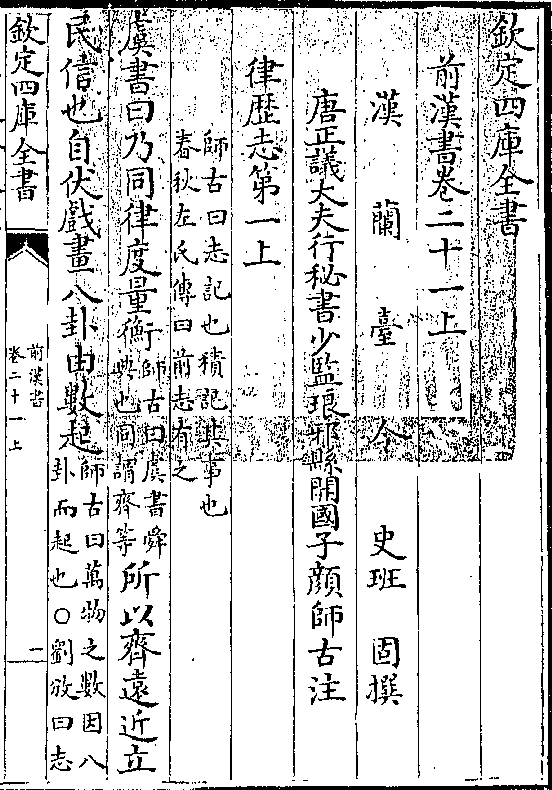 欽定四庫全書
前漢書卷二十一上
漢蘭臺令史班固撰
唐正議大夫行秘書少監琅邪縣開國子顔師古注
律歷志第一上
師古曰志記也積記其事也
春秋左氏傳曰前志有之
虞書曰乃同律度量衡師古曰虞書舜
典也同謂齊等所以齊遠近立
民信也自伏戲畫八卦由數起師古曰萬物之數因八
卦而起也○劉攽曰志
欽定四庫全書
前漢書
卷二十一上
一